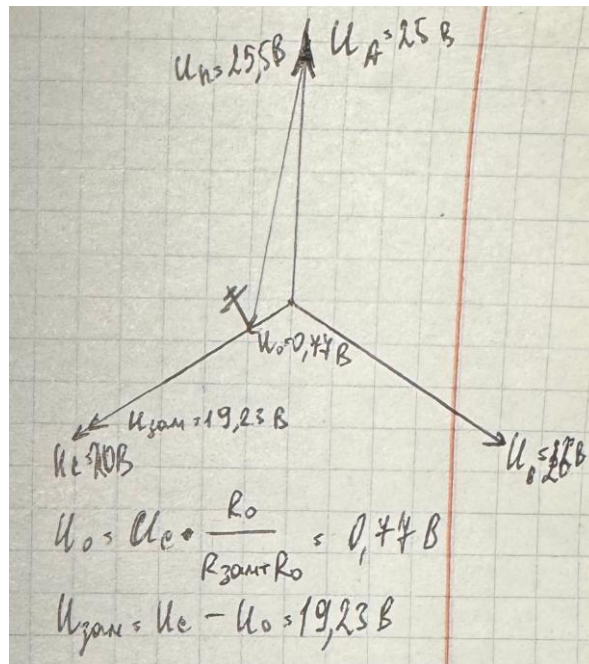 Uп = 25,5В
U_A = 25 В
U₀ = 0,77 В
Uзам = 19,23 В
Uc = 20В
U_в =
U₀ = Uc • R₀ / (Rзам + R₀) = 0,77 В
Uзам = Uc − U₀ = 19,23 В